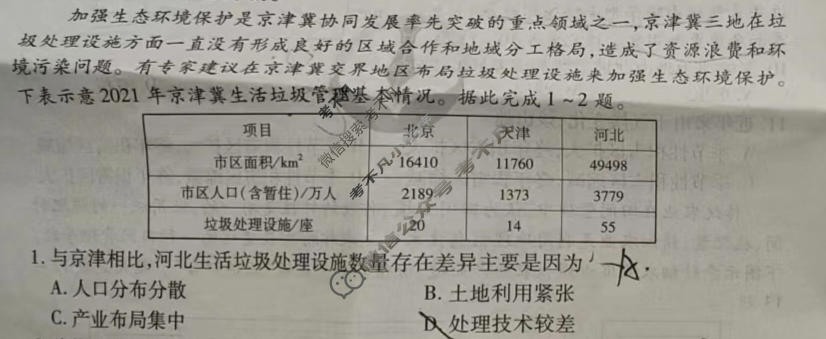 加强生态环境保护是京津冀协同发展率先突破的重点领域之一,京津冀三地在垃
圾处理设施方面一直没有形成良好的区域合作和地域分工格局,造成了资源浪费和环
境污染问题。有专家建议在京津冀交界地区布局垃圾处理设施来加强生态环境保护。
下表示意2021年京津冀生活垃圾管理基本情况。据此完成1~2题。
项目 北京 天津 河北
市区面积/km² 16410 11760 49498
市区人口(含暂住)/万人 2189 1373 3779
垃圾处理设施/座 20 14 55
1.与京津相比,河北生活垃圾处理设施数量存在差异主要是因为
A.人口分布分散 B.土地利用紧张
C.产业布局集中 D.处理技术较差